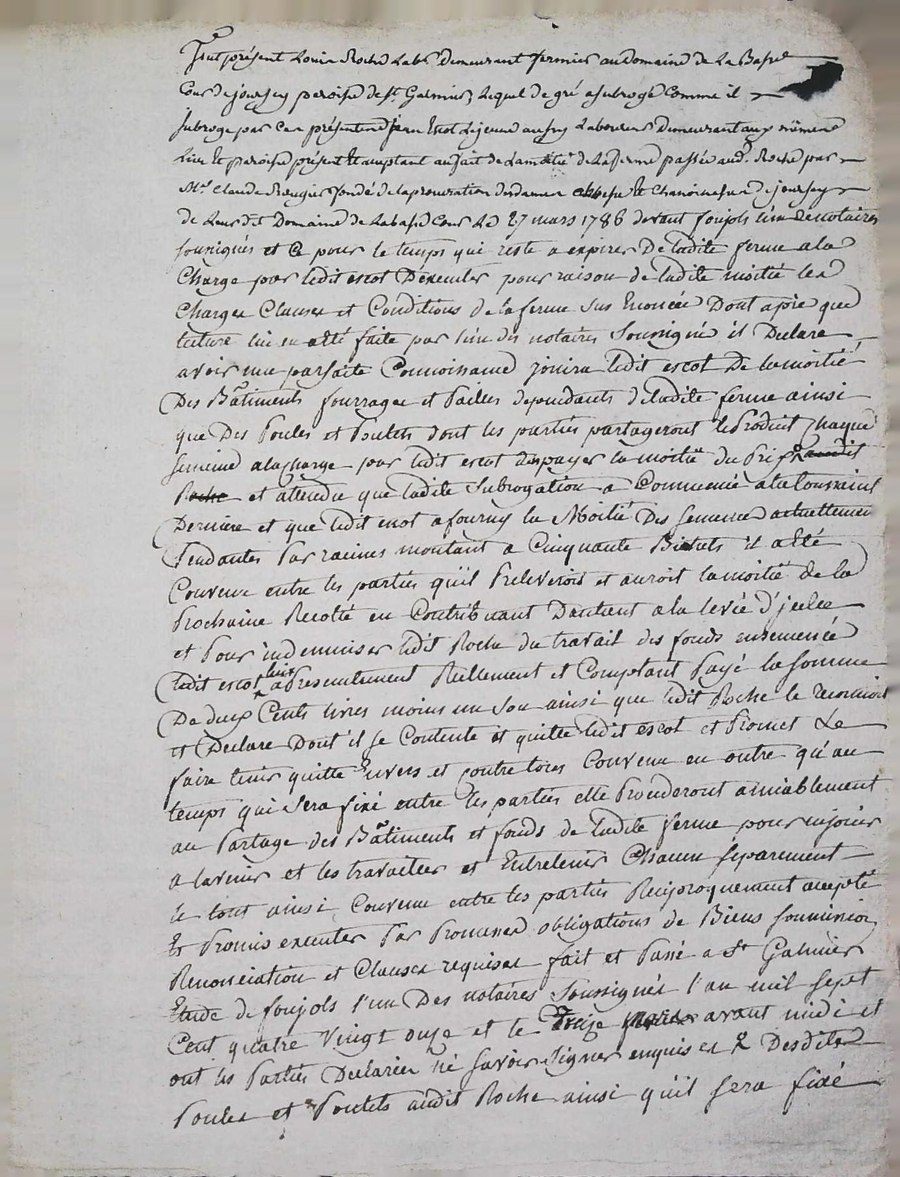 Fut présent Louis Roche Labr demeurant fermier au domaine de La Basse
Cour de joursey paroisse de St. Galmier, Lequel de gré a subrogé Comme il
subroge par Ces présentes Jean Escot Le jeune aussy Laboureur Demeurant aux mêmes
Lieu Et paroisse présent Et acceptant au fait de La moitié de La ferme passée aud. Roche par
Mre Claude Rougier fondé de la procuration des dames abbesse Et Chanoinesses de joursey
de Leur dit Domaine de La basse Cour Le 27 mars 1786 devant foujols L'un des notaires
soussignés et Ce pour le temps qui reste a expirer De ladite ferme a la
Charge par ledit escot D'executer pour raison de ladite moitié les
Charges Clauses et Conditions de la ferme sus Enoncée Dont apres que
lecture lui en a été faite par l'un des notaires Soussignés il Declare
avoir une parfaite Connoissance jouira ledit escot De la moitié
Des Bâtiments fourrages et Pailles dependants de ladite ferme ainsi
que Des Poules et Poulets dont les parties partageront le Produit Chaque
semaine a la charge par ledit escot de payer la moitié du Prix audit
Roche et attendu que ladite Subrogation a Commencé a la toussaint
Derniere et que ledit escot a fourny la Moitié Des semences actuellement
Pendantes Par racines montant a Cinquante Bichets il a été
Convenu entre les parties qu'il Preleveroit et auroit la moitié de la
Prochaine Recolte en Contribuant D'autant a la levée d'jcelle
et Pour indemniser ledit Roche du travail des fonds ensemencés
ledit escot luis a Presentement Reellement et Comptant Payé la somme
De deux Cents livres moins un Sou ainsi que ledit Roche le reconnoit
et Declare Dont il se Contente et quitte ledit escot et Promet Le
faire tenir quitte Envers et contre tous Convenu en outre qu'au
temps qui sera fixé entre les parties elle Procederont amiablement
au Partage des Bâtiments et fonds de ladite ferme pour en jouir
a l'avenir et les travailler et Entretenir Chacun séparement
le tout ainsi Convenu entre les parties Reciproquement accepté
Et Promis executer Par Promesses obligations de Biens soumissions
Renonciation et Clauses requises fait et Passé a St Galmier
Etude de foujols l'un Des notaires Soussignés l'an mil sept
Cent quatre Vingt onze et le Treize mars avant midi et
ont les Parties Declarées ne savoir signer enquises & Desdites
Poules et Poulets audit Roche ainsi qu'il sera fixé